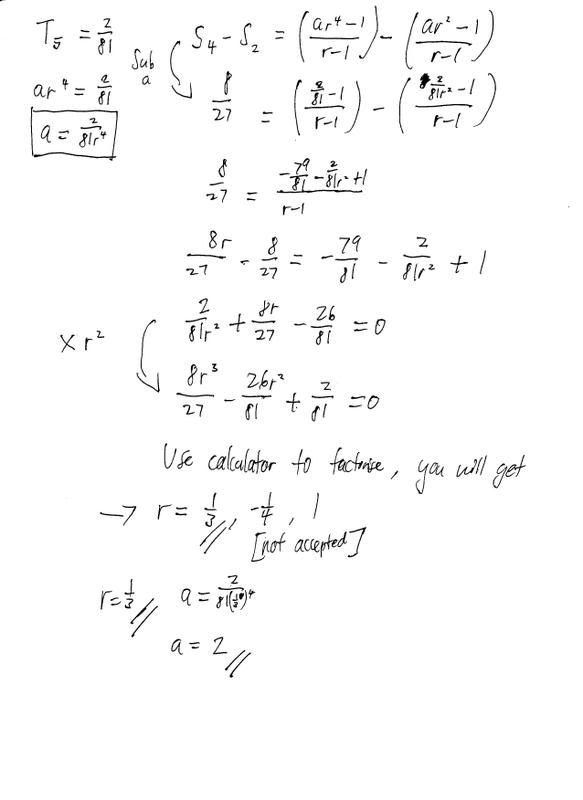 T₅ = 2/81
ar⁴ = 2/81
a = 2/81r⁴
Sub a
S₄ - S₂ = (ar⁴-1/r-1) - (ar²-1/r-1)
8/27 = (2/81 -1/r-1) - (2/81r² -1/r-1)
8/27 = -79/81 - 2/81r² +1/r-1
8r/27 - 8/27 = -79/81 - 2/81r² + 1
2/81r² + 8r/27 - 26/81 = 0
× r²
8r³/27 - 26r²/81 + 2/81 = 0
Use calculator to factorise, you will get
→ r = 1/3, -1/4, 1
[not accepted]
r = 1/3 a = 2/81(1/3)⁴
a = 2